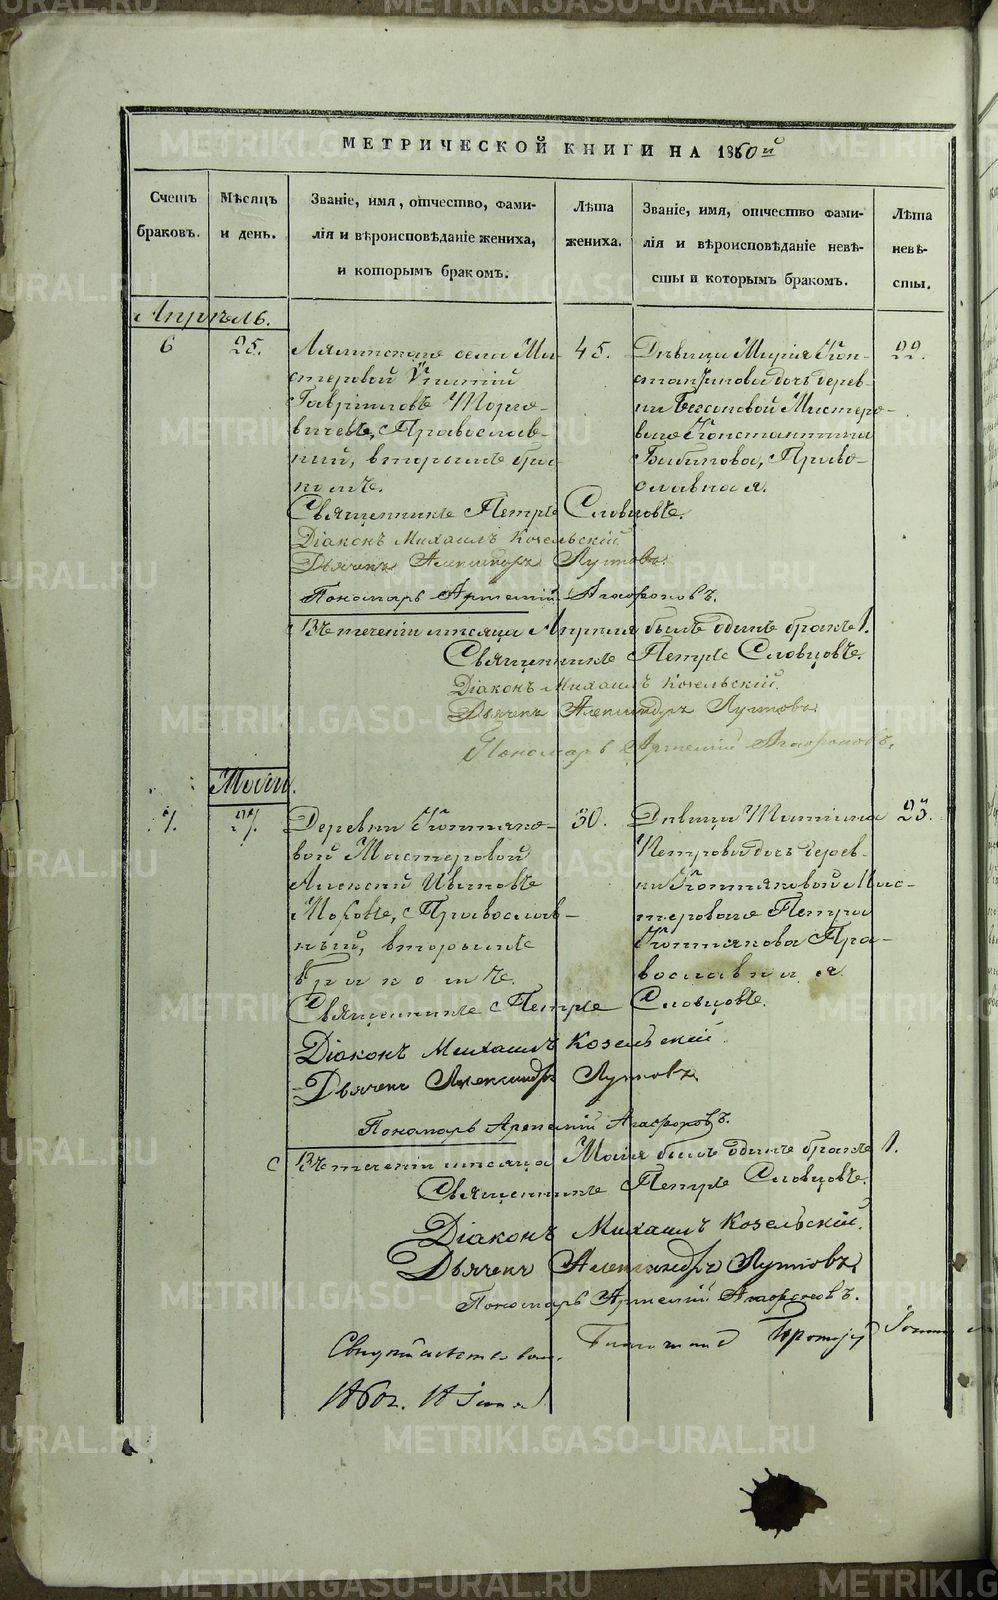 МЕТРИЧЕСКОЙ КНИГИ НА 1860й
Счетъ браковъ.
Мѣсяцъ и день.
Званіе, имя, отчество, фами-
лія и вѣроисповѣданіе жениха,
и которымъ бракомъ.
Лѣта
жениха.
Званіе, имя, отчество фами-
лія и вѣроисповѣданіе невѣ-
сты и которымъ бракомъ.
Лѣта
невѣ-
сты.
Апрѣль.
6
25.
села Ма-
стеровой
Гавріиловъ
Православ-
ный, вторымъ бра-
комъ.
45.
Дѣвица Марія Кон-
стантинова дочь дерев-
ни Мастеро-
ваго Константина
Бабинова, Право-
славная.
22.
Священникъ Петръ Словцовъ.
Діаконъ Михаилъ Козельскій
Дьячекъ Александръ Лутовъ.
Пономарь Артемій Агафоновъ.
Въ теченіи мѣсяца Апрѣля былъ одинъ бракъ 1.
Священникъ Петръ Словцовъ.
Діаконъ Михаилъ Козельскій.
Дьячекъ Александръ Лутовъ
Пономарь Артемій Агафоновъ.
Май.
7.
27.
Деревни Коптяко-
вой Мастеровой
Алексій Ивановъ
Православ-
ный, вторымъ
бракомъ.
30.
Дѣвица Татіана
Петрова дочь дерев-
ни Коптяковой Мас-
тероваго Петра
Коптякова Пра-
вославная.
23.
Священникъ Петръ Словцовъ.
Діаконъ Михаилъ Козельскій
Дьячекъ Александръ Лутовъ
Пономарь Артемій Агафоновъ.
Въ теченіи мѣсяца Мая былъ одинъ бракъ 1.
Священникъ Петръ Словцовъ.
Діаконъ Михаилъ Козельскій.
Дьячекъ Александръ Лутовъ
Пономарь Артемій Агафоновъ.
METRIKI.GASO-URAL.RU